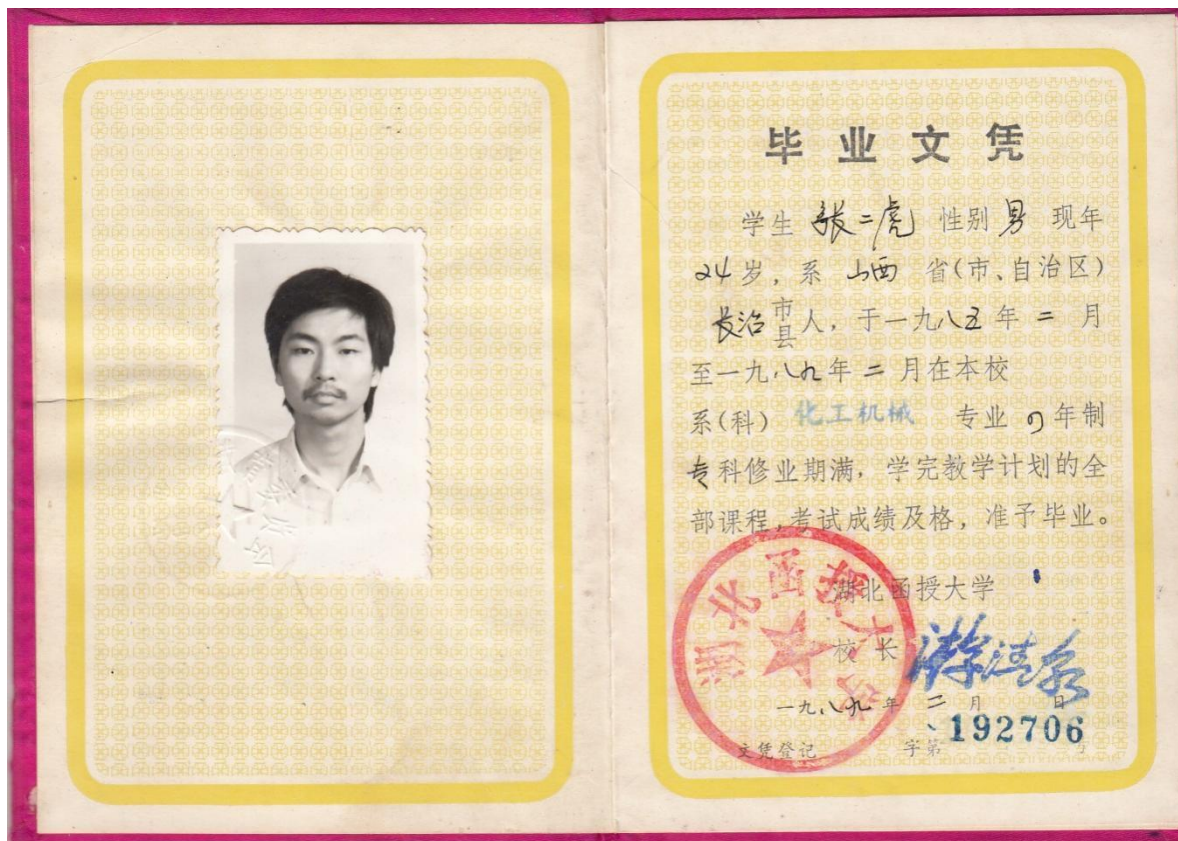 毕业文凭
学生 张二虎 性别 男 现年
24岁，系 山西 省(市、自治区)
长治 市县人，于一九八五年二月
至一九八九年二月在本校
系(科) 化工机械 专业 四年制
专科修业期满，学完教学计划的全
部课程，考试成绩及格，准予毕业。
湖北函授大学
湖北函授大学
校长
一九八九年二月 日
文凭登记 字第192706号